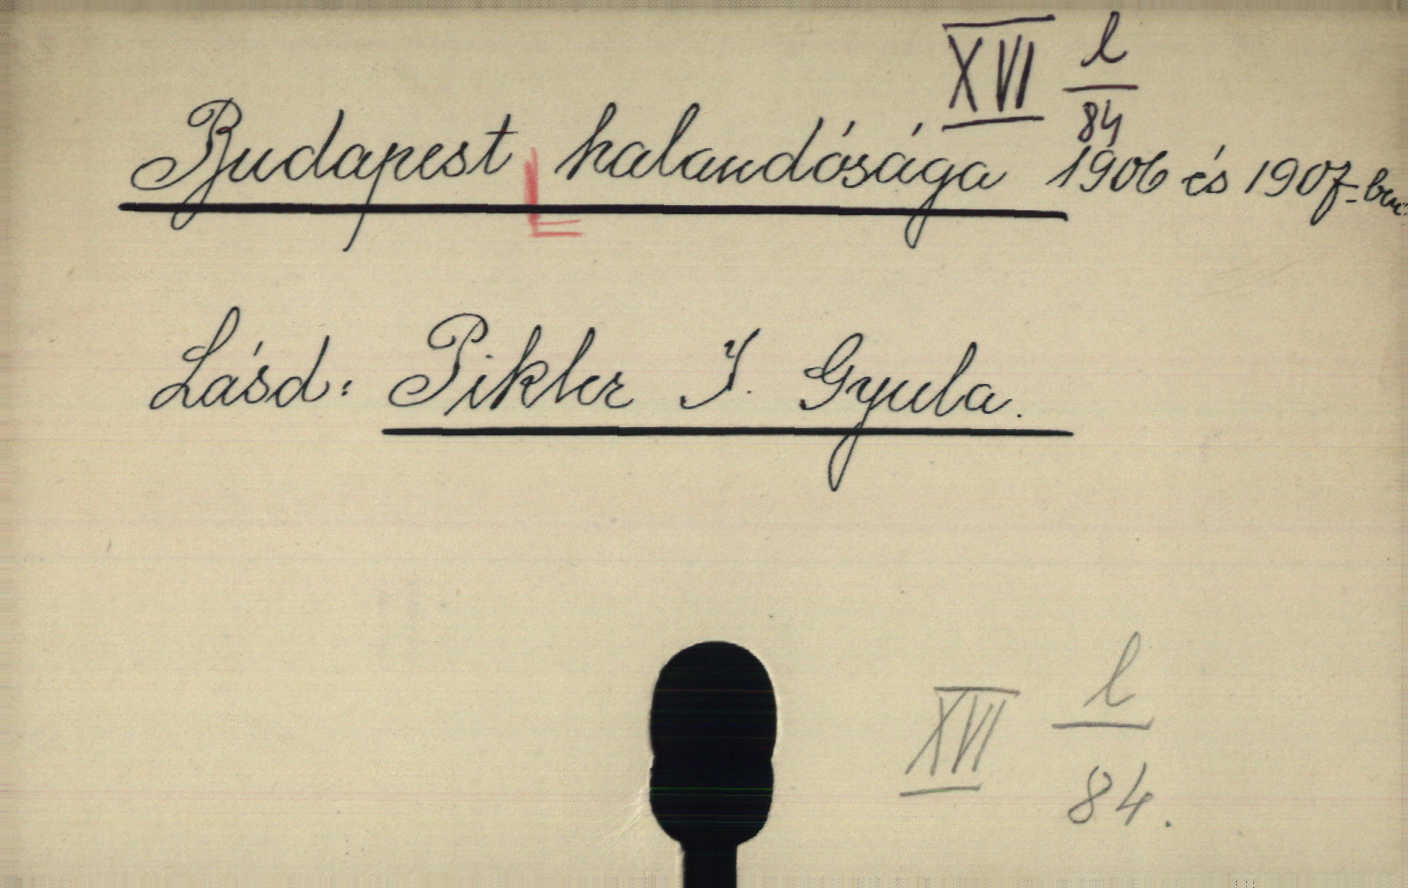 XVI l/84
Budapest halandósága 1906 és 1907-ben
Lásd: Pikler J. Gyula.
XVI l/84.